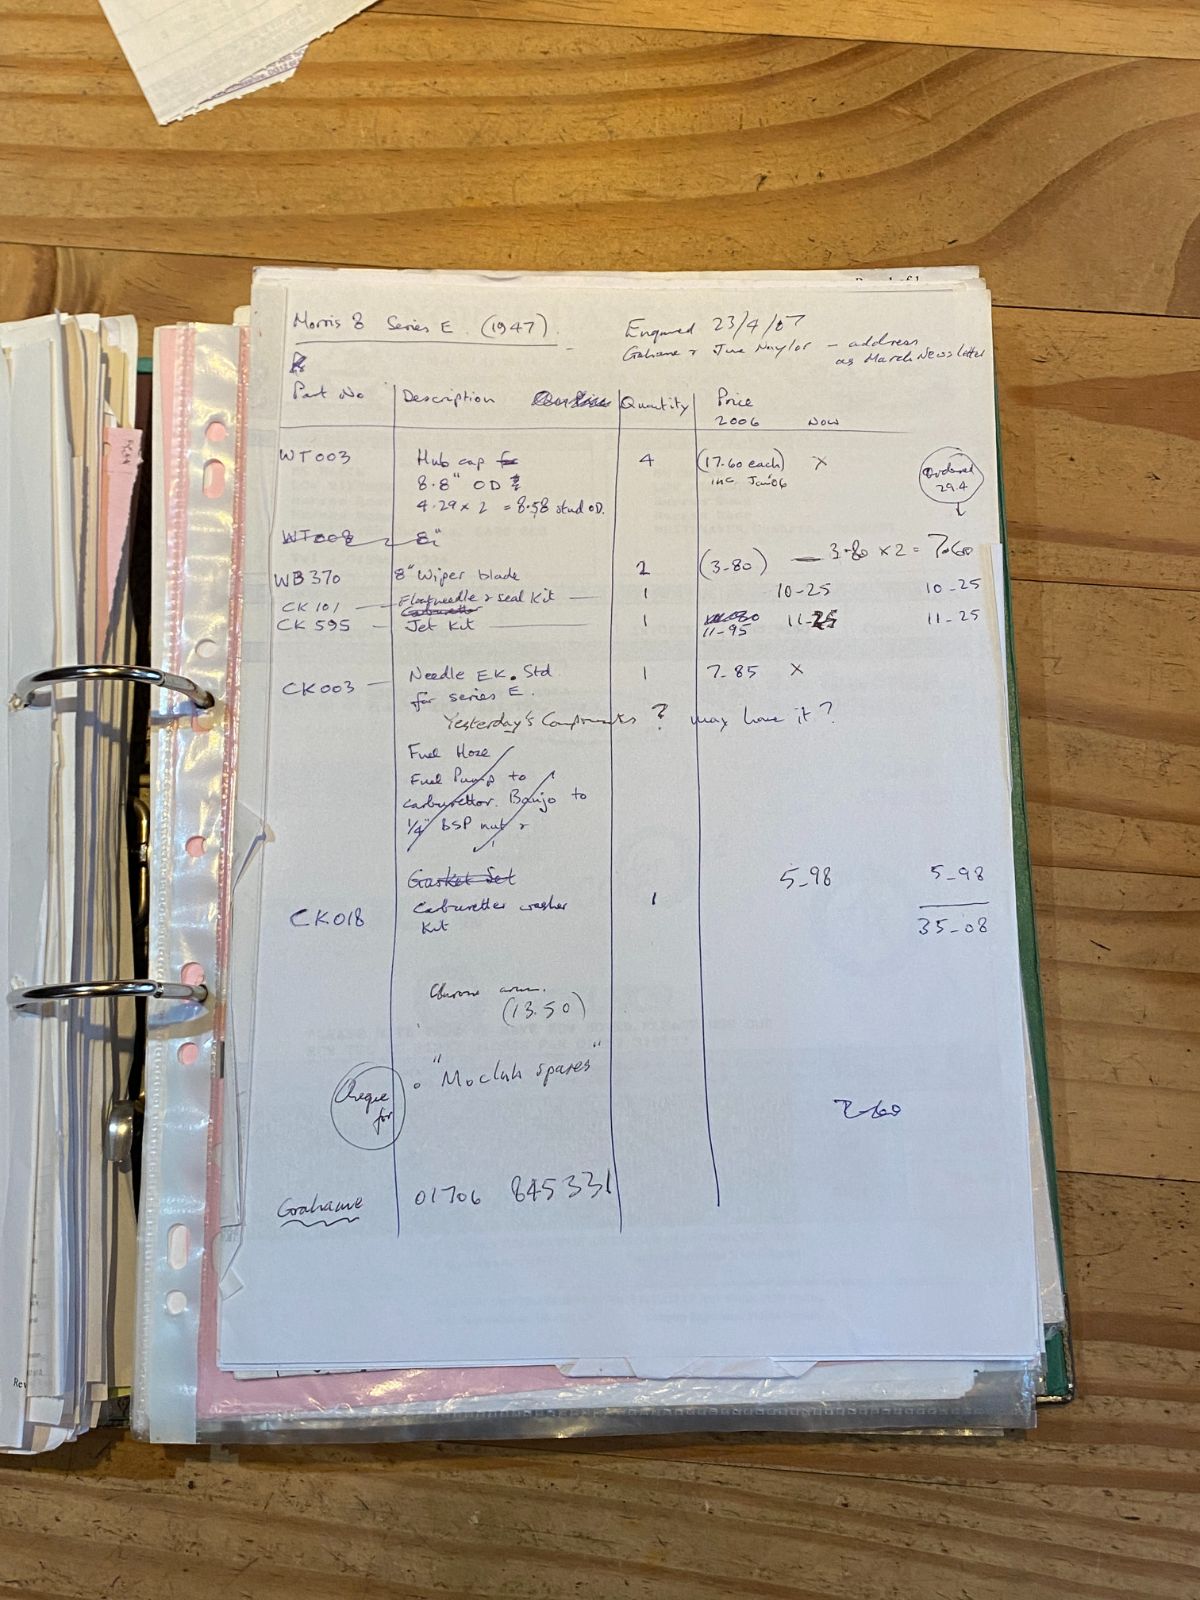 Morris 8 Series E. (1947).
Enquired 23/4/07
Grahame & June Naylor – address
as March Newsletter
Part No Description Quantity Price
2006 NOW
WT003 Hub cap 4 (17.60 each) x
8.8" OD inc Jan 06
4.29 x 2 = 8.58 stud OD.
Ordered
29.4
WT008 8"
WB370 8" Wiper blade 2 (3-80) — 3-80 x 2 = 7-60
CK101 — Floatneedle & seal Kit — 1 10-25 10-25
Carburettor
CK595 — Jet Kit — 1 11-95 11-25 11-25
CK003 — Needle E.K. Std 1 7-85 x
for series E.
Yesterday's Components ? may have it ?
Fuel Hose
Fuel Pump to
carburettor. Banjo to
1/4" BSP nut &
Gasket Set 5-98 5-98
CK018 Carburetter washer 1
Kit
35-08
Chrome arm.
(13.50)
Cheque
for
"Moclub spares"
7-60
Grahame 01706 845331
Rev